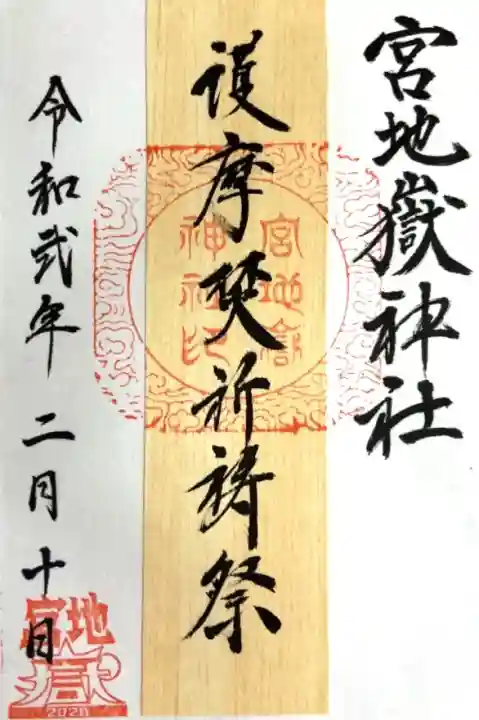 宮地嶽神社
護摩焚祈祷祭
令和弐年 二月十日
宮地嶽
神社印
宮地
嶽
2020